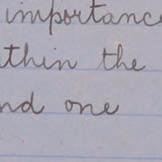 importance
within the
and one